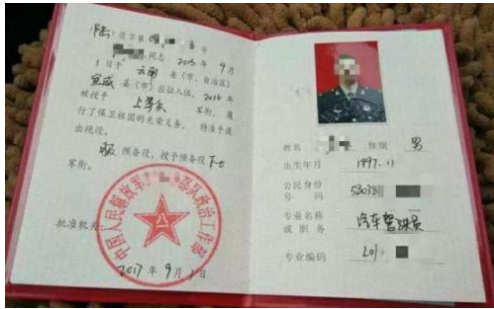 (陆) 退字第 号
同志 2015 年 9 月
1 日于 云南 省(市、自治区)
宣威 县(市)应征入伍,2016 年
被授予 上等兵 军衔,履
行了保卫祖国的光荣义务,特准予退
出现役。
服 预备役,授予预备役 下士
军衔。
批准机关:
中国人民解放军 部队政治工作部
2017 年 9 月 1 日
姓名 性别 男
出生年月 1997.11
公民身份
号码 53038
专业名称
或职务 汽车驾驶员
专业编码 201